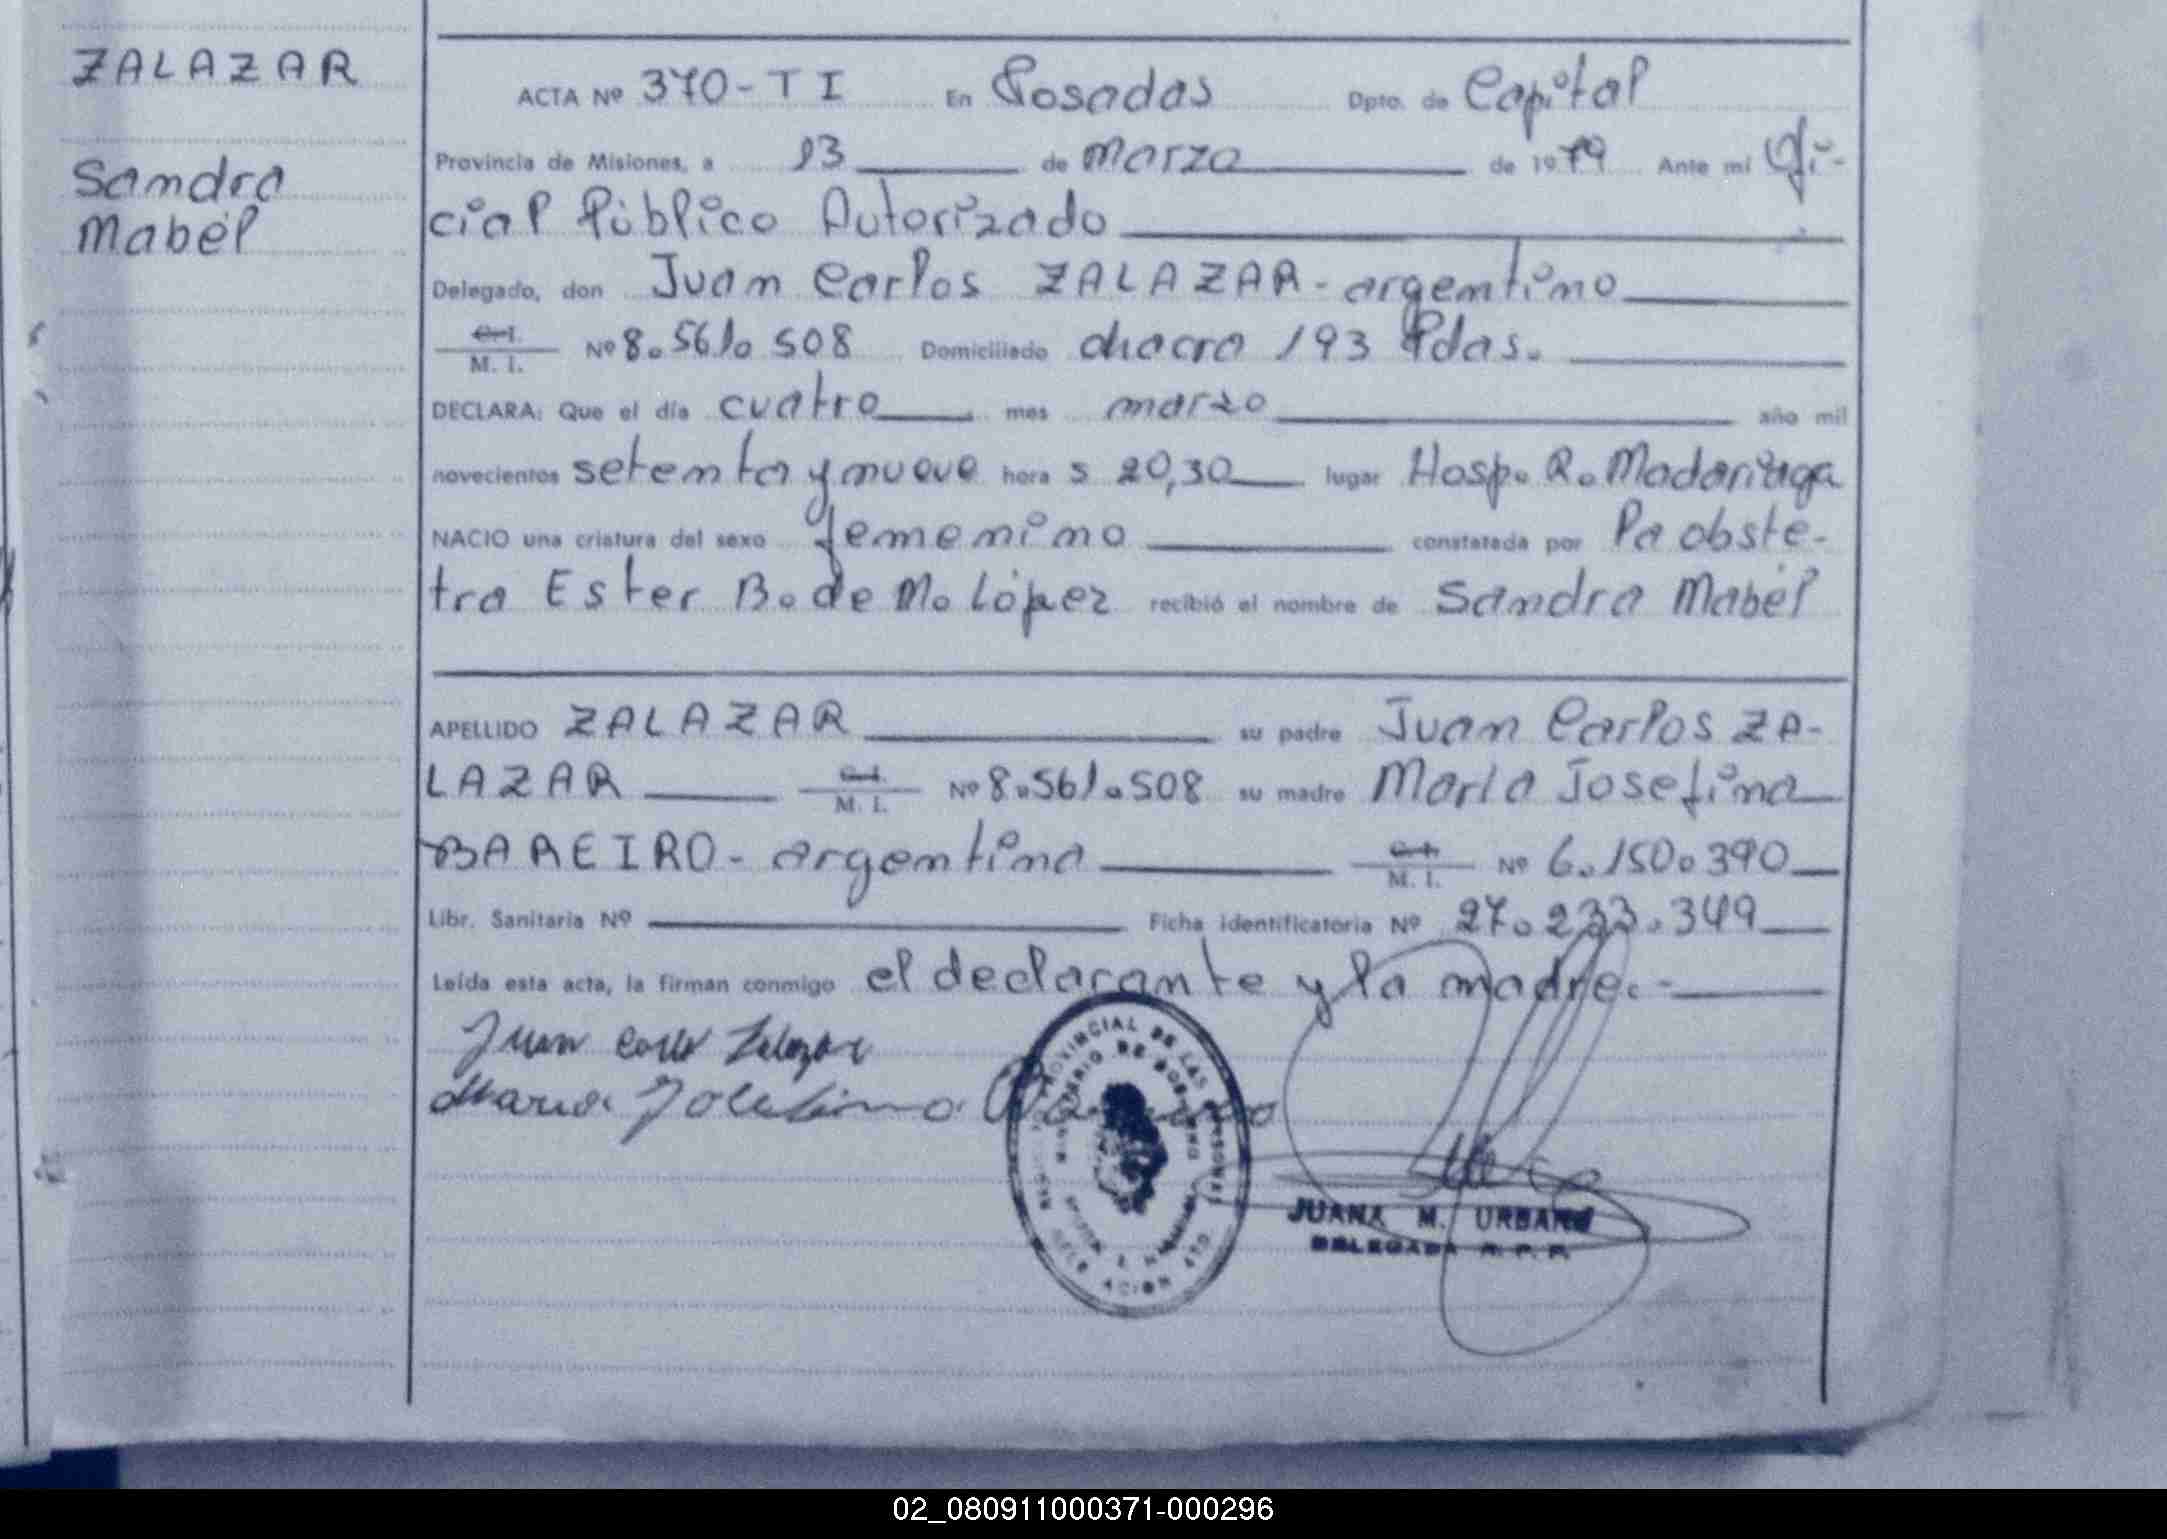 ZALAZAR
Sandra
Mabel
ACTA Nº 370-TI En Posadas Dpto. de Capital
Provincia de Misiones, a 13 de marzo de 1979 Ante mí Ofi-
cial Público Autorizado
Delegado, don Juan Carlos ZALAZAR - argentino
C.I.
M. I. Nº 8.561.508 Domiciliado chacra 193 Pdas.
DECLARA: Que el día cuatro mes marzo año mil
novecientos setenta y nueve hora s 20,30 lugar Hosp. R. Madariaga
NACIO una criatura del sexo femenino constatada por la obste-
tra Ester B. de M. López recibió el nombre de Sandra Mabel
APELLIDO ZALAZAR su padre Juan Carlos ZA-
LAZAR C.I. M. I. Nº 8.561.508 su madre María Josefina
BAREIRO - argentina C.I. M. I. Nº 6.150.390
Libr. Sanitaria Nº Ficha identificatoria Nº 27.233.349
Leída esta acta, la firman conmigo el declarante y la madre.-
Juan Carlos Zalazar
Maria Josefina
PROVINCIAL DE LAS PERSONAS
MINISTERIO DE GOBIERNO
DELEGACION
JUANA M. URBANO
DELEGADA R. P. P.
02_080911000371-000296